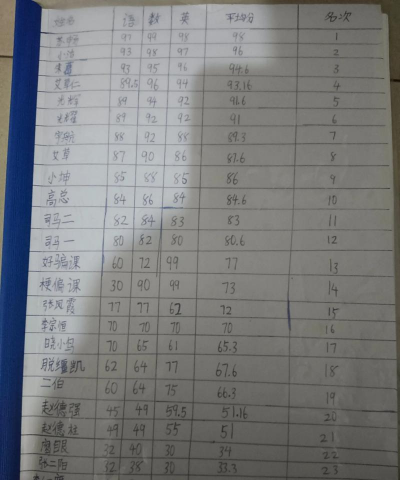 姓名 语 数 英 平均分 名次
97 99 98 98 1
93 98 97 96 2
93 95 96 94.6 3
89.5 96 94 93.16 4
89 94 92 91.6 5
89 92 92 91 6
88 92 88 89.3 7
艾草 87 90 86 87.6 8
小坤 85 88 85 86 9
高总 84 86 84 84.6 10
司马二 82 84 83 83 11
司马一 80 82 80 80.6 12
好骗课 60 72 99 77 13
梗偏课 30 90 99 73 14
张凤霞 77 77 62 72 15
李宗恒 70 70 70 70 16
小鸟 70 65 61 65.3 17
脱缰凯 62 64 77 67.6 18
二伯 60 64 75 66.3 19
赵德强 45 49 59.5 51.16 20
赵德柱 49 49 55 51 21
32 40 30 34 22
张二阳 32 38 30 33.3 23